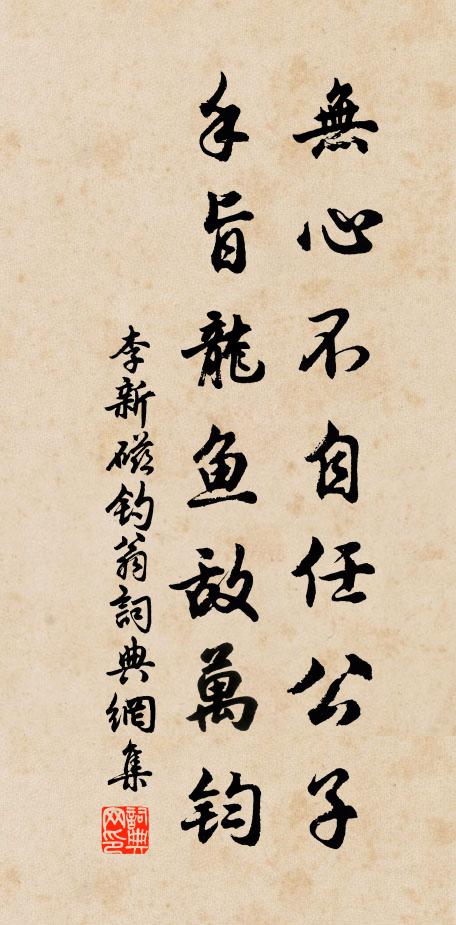 無心不自任公子
手旨龍鱼敌萬钧
李新磁钓翁詞典網集
詞典网印